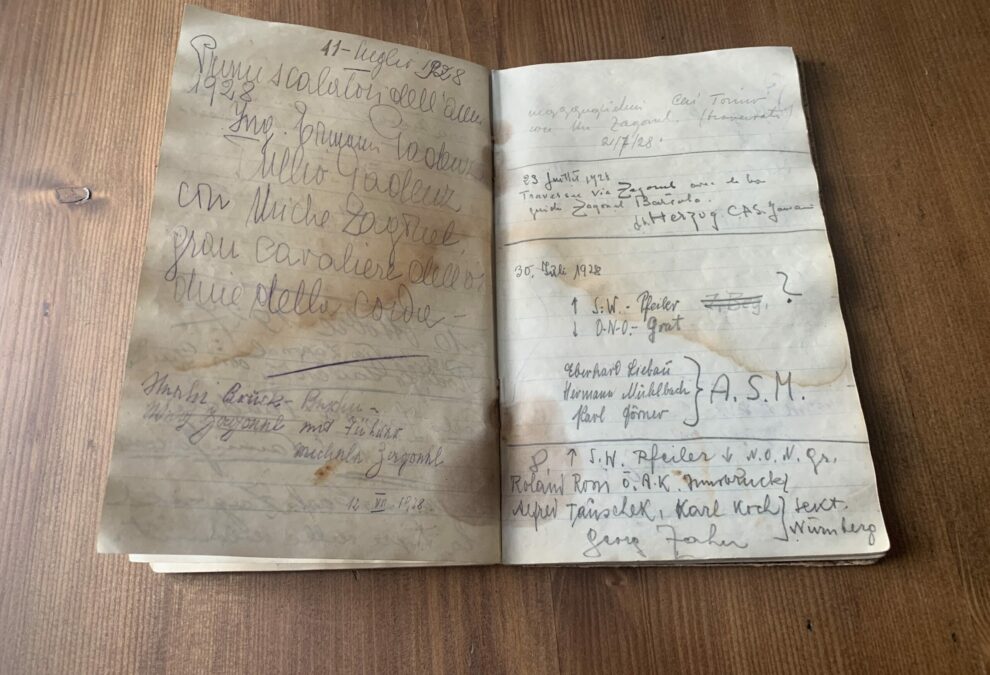 11 - Luglio 1928
Primi scalatori dell'anno
1928
Ing. Ermanno Gadenz
Tullio Gadenz
con Miche Zagonel
gran cavaliere dell'or
dine della corda -
mit Führer
Michele Zagonel
12 VII 1928
Cai Torino
con Zagonel. (traversata)
2/7/28.
23 Juillet 1928
Traversée via Zagonel avec le bon
guide Zagonel Bartolo.
dr Herzog C.A.S.
30. Juli 1928
↑ S.W. - Pfeiler ?
↓ O.N.O. - Grat
Eberhard Liebau
Hermann Mühlbach
Karl Görner
A.S.M.
8. ↑ S.W. Pfeiler ↓ N.O.N. Gr.
Roland Rossi Ö.A.K. Innsbruck
Alfred Täuschek, Karl Koch
Sekt.
Nürnberg
Georg